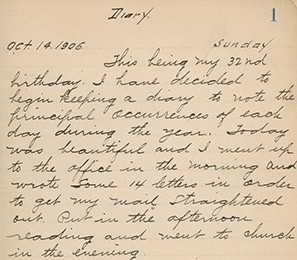 Diary. 1
Oct. 14. 1906 Sunday
This being my 32nd
birthday. I have decided to
begin keeping a diary to note the
principal occurrences of each
day during the year. Today
was beautiful and I went up
to the office in the morning and
wrote some 14 letters in order
to get my mail straightened
out. Put in the afternoon
reading and went to church
in the evening.